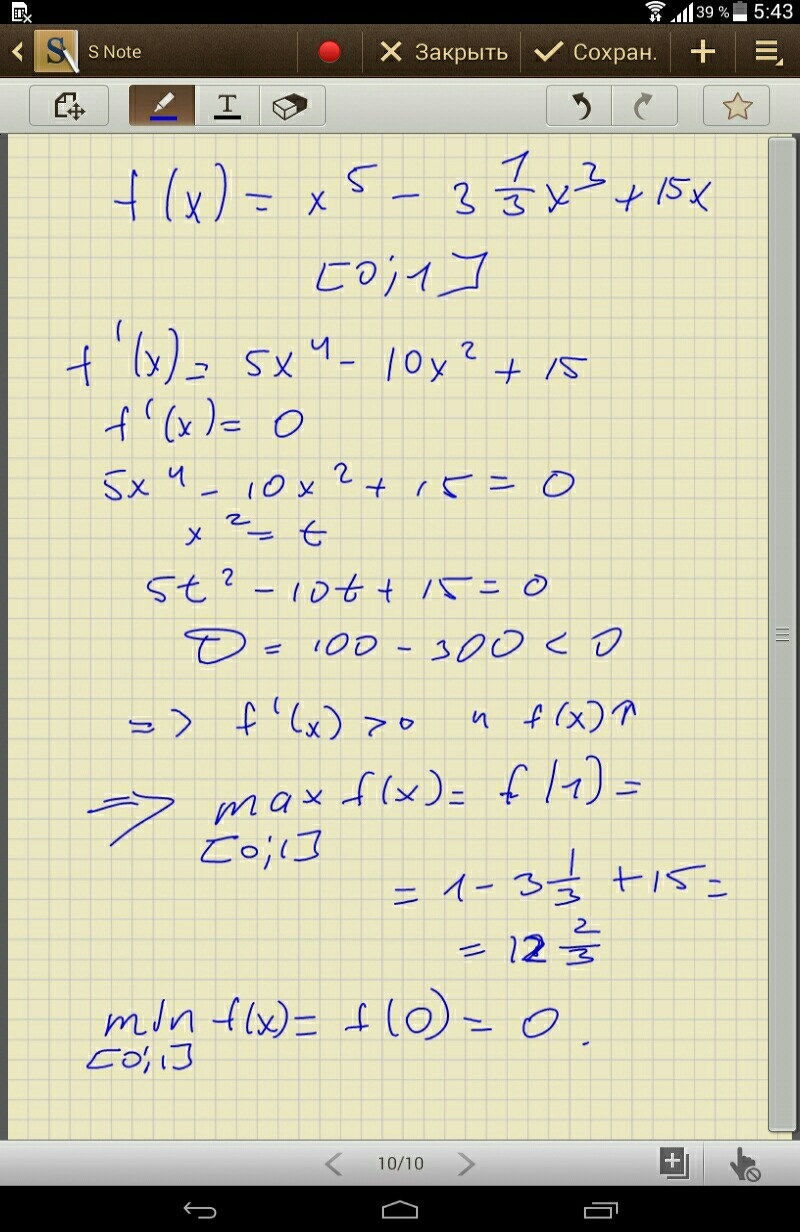 39 % 5:43
S Note Закрыть Сохран.
T
f(x) = x⁵ - 3 1/3 x³ + 15x
[0;1]
f'(x) = 5x⁴ - 10x² + 15
f'(x) = 0
5x⁴ - 10x² + 15 = 0
x² = t
5t² - 10t + 15 = 0
D = 100 - 300 < 0
=> f'(x) > 0 и f(x)↑
=> max f(x) = f(1) =
[0;1]
= 1 - 3 1/3 + 15 =
= 12 2/3
min f(x) = f(0) = 0.
[0;1]
10/10